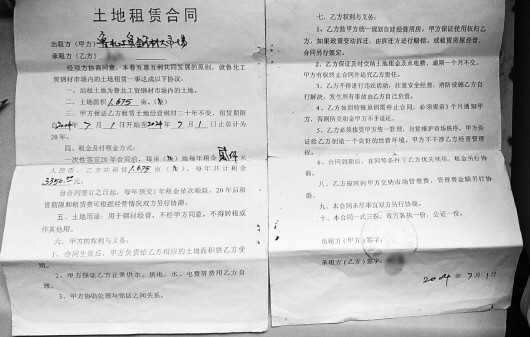 土地租赁合同
出租方（甲方）鲁北工贸钢材大市场
承租方（乙方）
经双方协商同意，本着互惠互利共同发展的原则，就鲁北工
贸钢材市场内的土地租赁一事达成以下协议。
一、出租土地为鲁北工贸钢材市场内的土地。
二、土地面积1.675亩。
三、甲方保证乙方租赁土地经营钢材二十年不变，用货期限
自2004年7月1日开始至2024年7月1日止总计为
20年。
四、租金及付租金方式：
一次性签定20年合同的，每亩 地每年租金贰仟元
人民币，乙方共租赁1.675亩 ，每年共计租金
3350.00元。
自合同签订之日起，每年预交1年租金依次顺延，20年后租
赁期限和租赁费可根据经营情况双方另行协商。
五、土地用途：用于钢材经营，不经甲方同意，不得转租或
作其他用。
六、甲方的权利与义务：
1、合同生效后，甲方负责给乙方相应的土地面积供乙方使
用。
2、甲方保证乙方正常供水、供电，水、电费等费用乙方自
理。
3、甲方协助处理与邻居之间关系。
七、乙方权利与义务：
1、乙方按甲方统一规划自建经营用房，甲方保证使用权归乙
方，如果政策变动拆迁，由拆迁方进行赔偿，或租赁房屋经营，
合同另行签定。
2、乙方保证及时交纳土地租金及水电费，逾期一个月不交，
甲方有权终止合同并追究乙方责任。
3、乙方不得进行违法活动，注意安全经营，消防设施乙方自
行解决，发生所有事故由乙方自己负责。
4、乙方如因特殊原因需终止合同，必须提前3个月通知甲
方，否则所交租金甲方不予返还。
5、乙方必须接受甲方统一管理，自觉维护市场秩序，甲方保
证给乙方创造一个良好的经营环境，甲方不干涉乙方经营管理
权。
6、合同到期后，在同等条件下乙方优先续租，租金另行协
商。
八、乙方按时向甲方交纳市场管理费，管理费金额另行协
商。
九、本合同未尽事宜双方另行协商。
十、本合同一式三份，双方各执一份，公证一份。
出租方（甲方）签字：
承租方（乙方）签字：
2004年7月1日